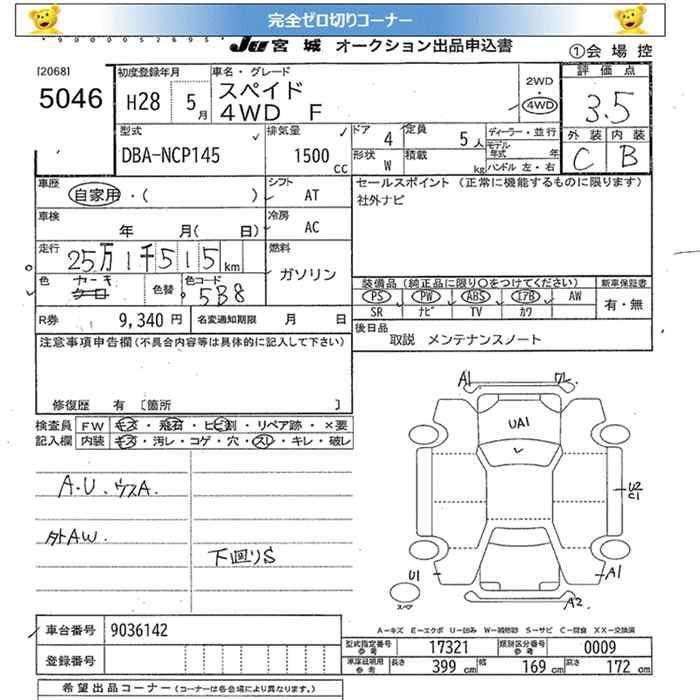 完全ゼロ切りコーナー
JU 宮城 オークション出品申込書
①会場控
[2068]
5046
初度登録年月
H28 5月
車名・グレード
スペイド
4WD F
2WD
・
4WD
評価点
3.5
外装 内装
C B
型式
DBA-NCP145
排気量
1500 CC
ドア 4
定員 5人
ディーラー・並行
モデル年式 年
形状 W
積載 kg
ハンドル 左・右
車歴
自家用・( )
シフト AT
セールスポイント (正常に機能するものに限ります)
社外ナビ
車検
年 月( 日)
冷房 AC
走行
25万1千515km
燃料
ガソリン
色 カーキ
色替
色コード
5B8
装備品 (純正品に限り○をつけてください)
新車保証書
PS PW ABS エアB AW
SR ナビ TV カワ
有・無
R券 9,340円
名変通知期限 月 日
後日品
取説 メンテナンスノート
注意事項申告欄(不具合内容等は具体的に記入して下さい)
修復歴 有 [箇所 ]
検査員記入欄
FW キズ・飛石・ヒビ割・リペア跡・×要
内装 キズ・汚レ・コゲ・穴・スレ・キレ・破レ
A.U.ウスA.
外AW.
下回りS
A1
UA1
U2
C1
U1
A1
A2
スペア
A-キズ E-エクボ U-凹み W-補修跡 S-サビ C-腐食 XX-交換済
車台番号 9036142
登録番号
型式指定番号 参考 17321
類別区分番号 参考 0009
車庫証明用 参考 長さ 399 cm 幅 169 cm 高さ 172 cm
希望出品コーナー (コーナーは各会場により異なります。)